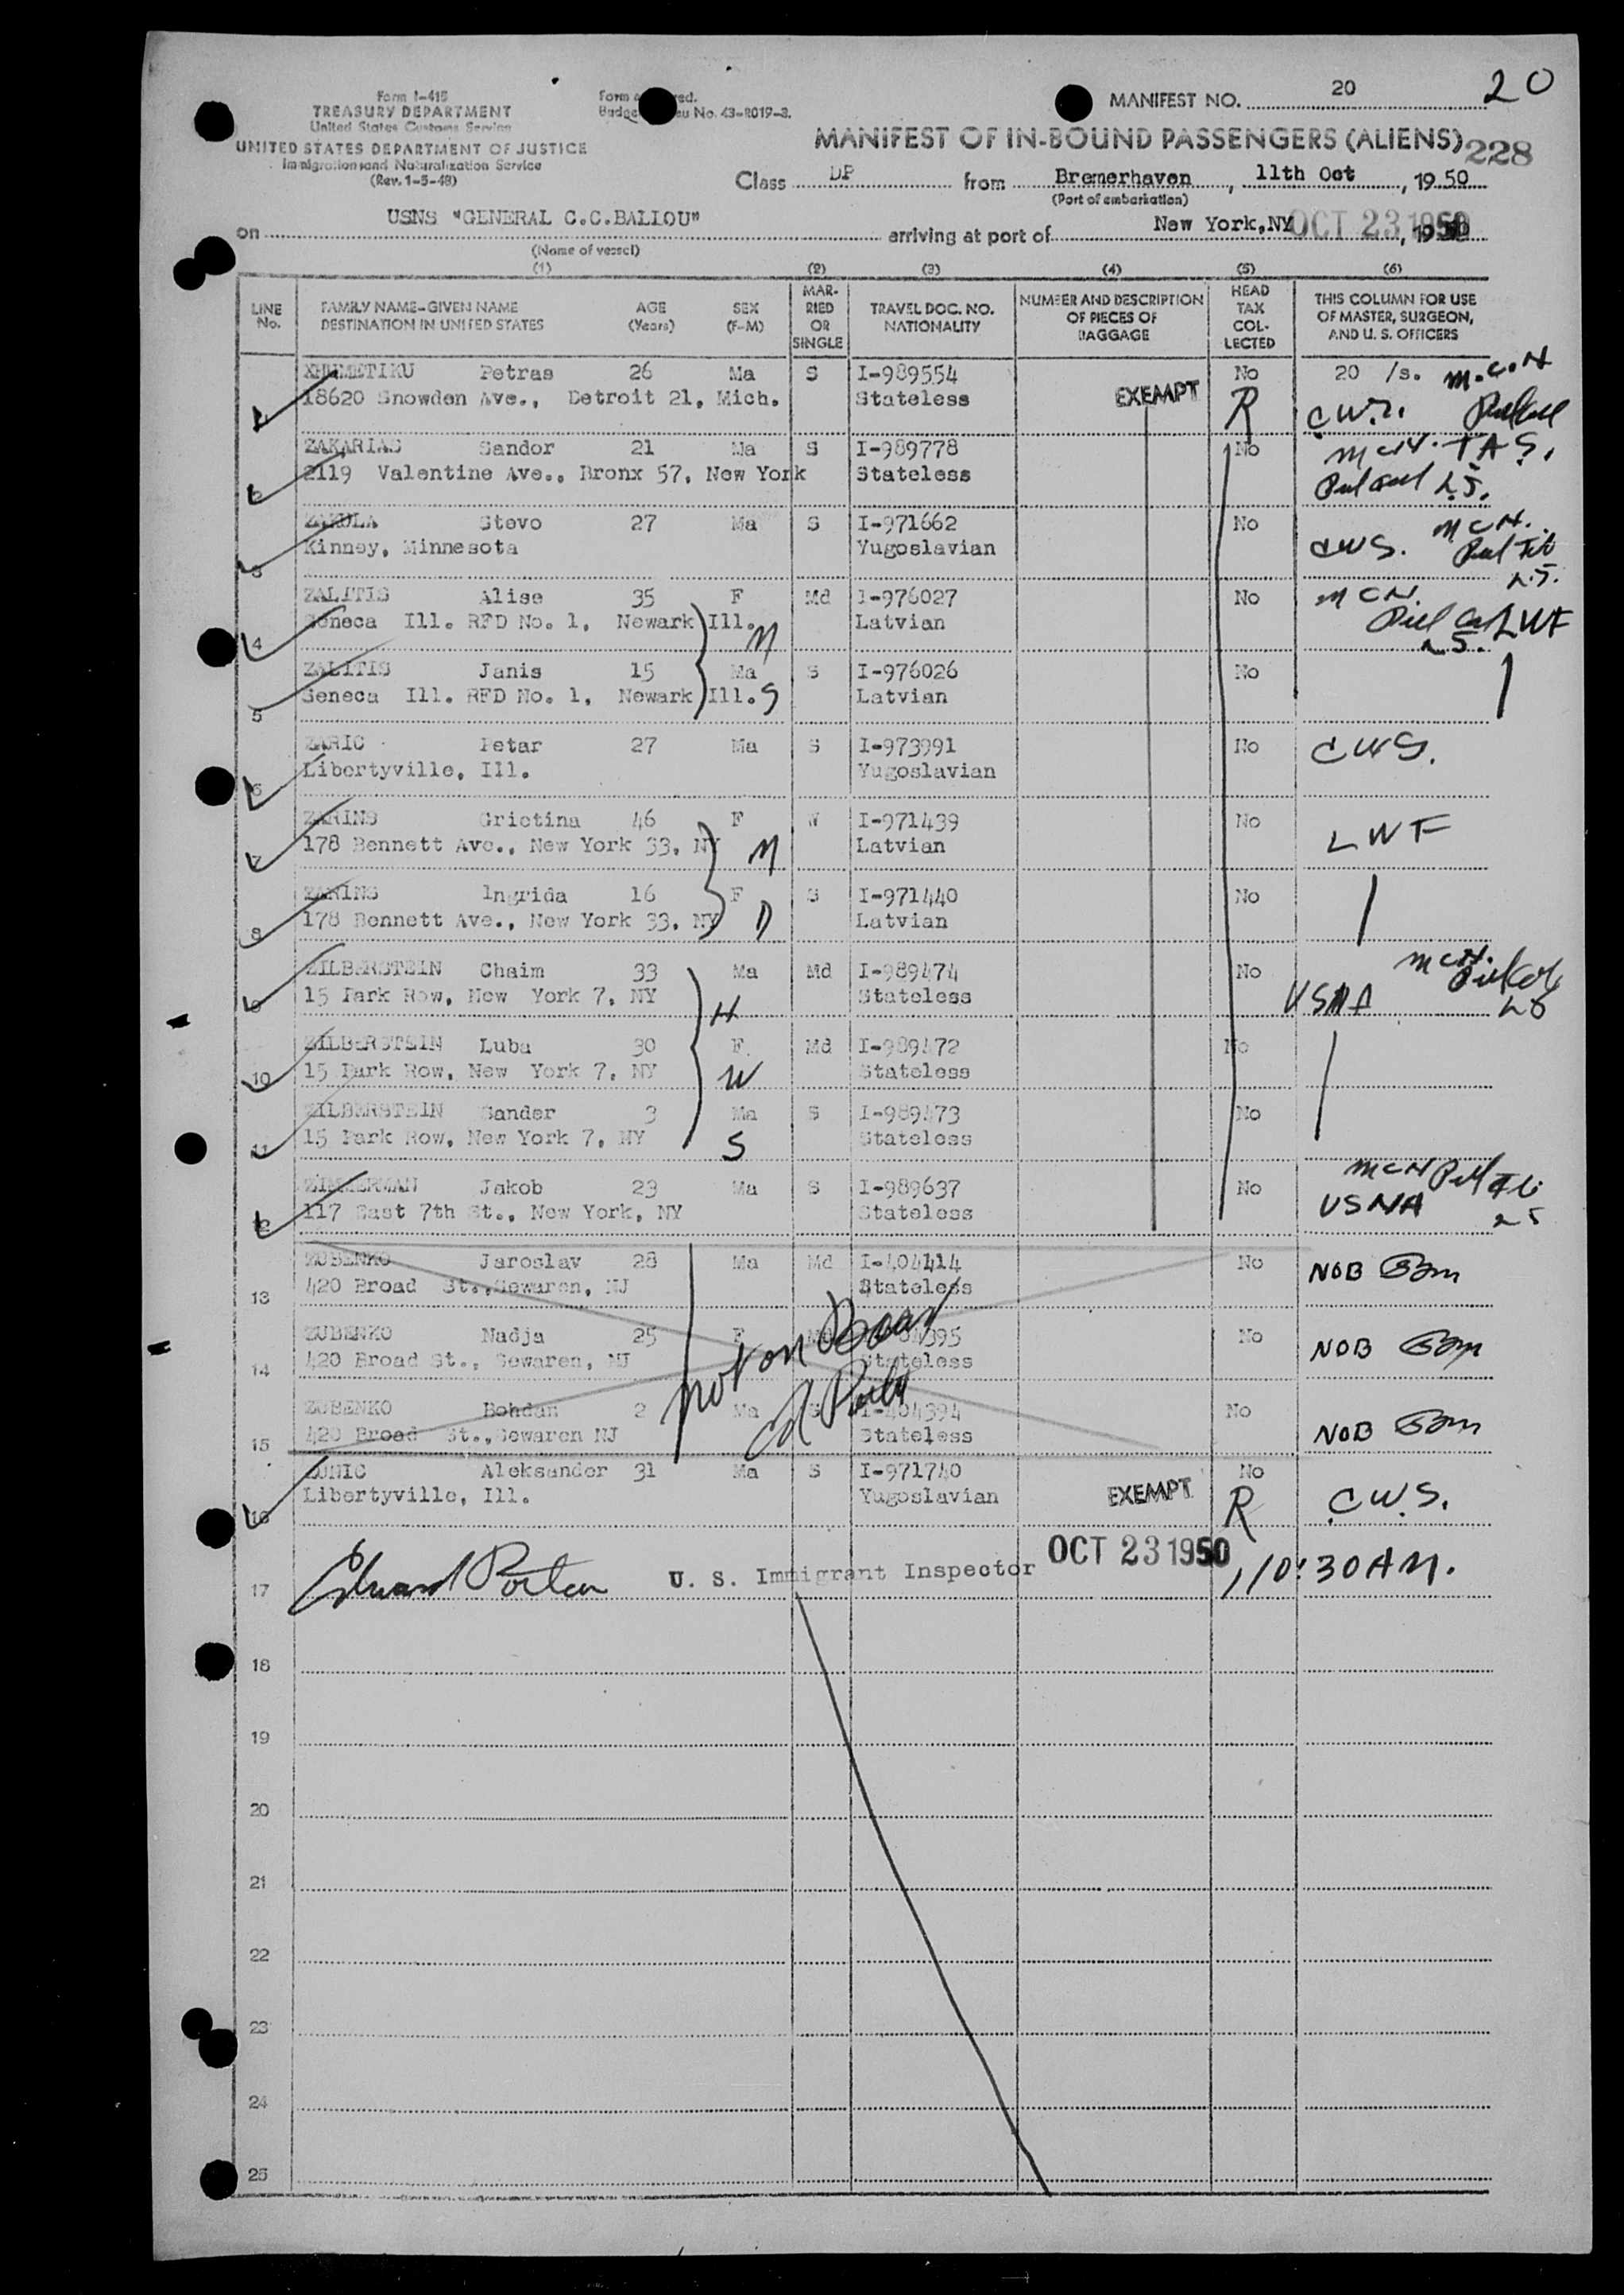 Form I-415
TREASURY DEPARTMENT
United States Customs Service
UNITED STATES DEPARTMENT OF JUSTICE
Immigration and Naturalization Service
(Rev. 1-5-48)
Form
Budget No. 43-R019-3.
MANIFEST NO. 20
20
MANIFEST OF IN-BOUND PASSENGERS (ALIENS) 228
Class DP from Bremerhaven, 11th Oct, 1950
(Port of embarkation)
on USNS "GENERAL C.C.BALLOU" arriving at port of New York,NY OCT 23 1950
(Name of vessel)
(1) (2) (3) (4) (5) (6)
LINE No. FAMILY NAME-GIVEN NAME DESTINATION IN UNITED STATES AGE (Years) SEX (F-M) MARRIED OR SINGLE TRAVEL DOC. NO. NATIONALITY NUMBER AND DESCRIPTION OF PIECES OF BAGGAGE HEAD TAX COLLECTED THIS COLUMN FOR USE OF MASTER, SURGEON, AND U. S. OFFICERS
XHUMETIKU Petras 26 Ma S I-989554 No 20 /s. M.C.N
18620 Snowden Ave., Detroit 21, Mich. Stateless EXEMPT R
ZAKARIAS Sandor 21 Ma S I-989778 No
2119 Valentine Ave., Bronx 57, New York Stateless
Stevo 27 Ma S I-971662 No MCN.
3 Kinney, Minnesota Yugoslavian CWS.
ZALITIS Alise 35 F Md I-976027 No MCN.
4 Seneca Ill. RFD No. 1, Newark Ill. M Latvian LWF
ZALITIS Janis 15 Ma S I-976026 No
5 Seneca Ill. RFD No. 1, Newark Ill. S Latvian
ZARIC Petar 27 Ma S I-973991 No CWS.
6 Libertyville, Ill. Yugoslavian
ZARINS Grietina 46 F W I-971439 No LWF
7 178 Bennett Ave., New York 33, NY M Latvian
ZARINS Ingrida 16 F S I-971440 No
8 178 Bennett Ave., New York 33, NY D Latvian
ZILBERSTEIN Chaim 33 Ma Md I-989474 No MCN.
9 15 Park Row, New York 7, NY H Stateless USNA
ZILBERSTEIN Luba 30 F. Md I-989472 No
10 15 Park Row, New York 7, NY W Stateless
ZILBERSTEIN Sander 3 Ma S I-989473 No
11 15 Park Row, New York 7, NY S Stateless
ZIMMERMAN Jakob 23 Ma S I-989637 No MCN
12 117 East 7th St., New York, NY Stateless USNA
ZUBENKO Jaroslav 28 Ma Md I-404414 No NOB
13 420 Broad St., Sewaren, NJ Stateless
ZUBENKO Nadja 25 F Md No NOB
14 420 Broad St., Sewaren, NJ Stateless
not on Board
ZUBENKO Bohdan 2 Ma S I-404394 No NOB
15 420 Broad St., Sewaren NJ Stateless
ZUNIC Aleksander 31 Ma S I-971740 No C.W.S.
16 Libertyville, Ill. Yugoslavian EXEMPT R
17 Edward Porter U. S. Immigrant Inspector OCT 23 1950 10:30 AM.
18
19
20
21
22
23
24
25